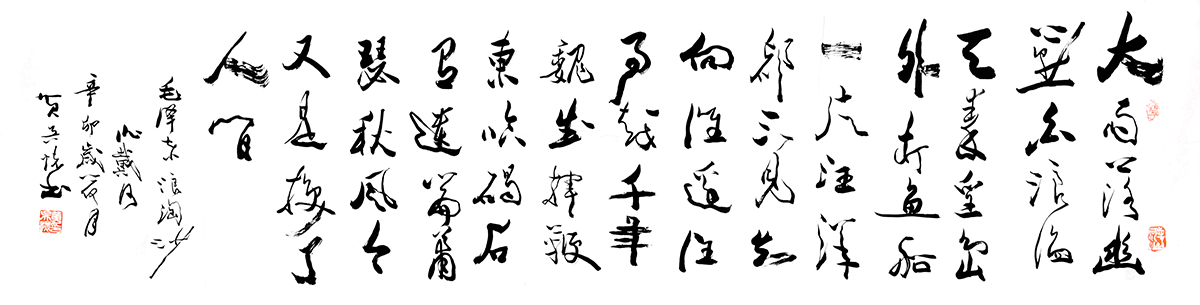 大雨落幽
燕白浪滔
天秦皇岛
外打鱼船
一片汪洋
都不见知
向谁边往
事越千年
魏武揮鞭
東临碣石
有遗篇蕭
瑟秋風今
又是换了
人间
毛泽东浪淘沙
北戴河
辛卯歲月
书